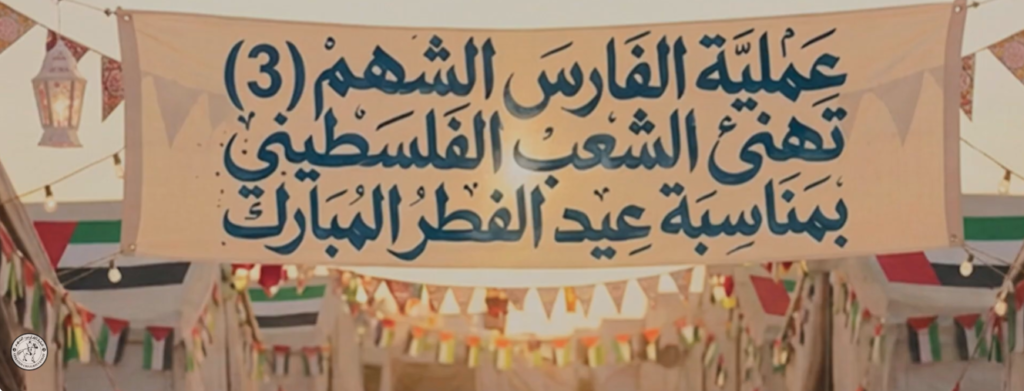 عَمَليَّة الفَارسَ الشهمْ (3)
تَهنئ الشعب الفَلسَطيني
بمَنَاسِبَة عِيد الفطرُ المُبَارك